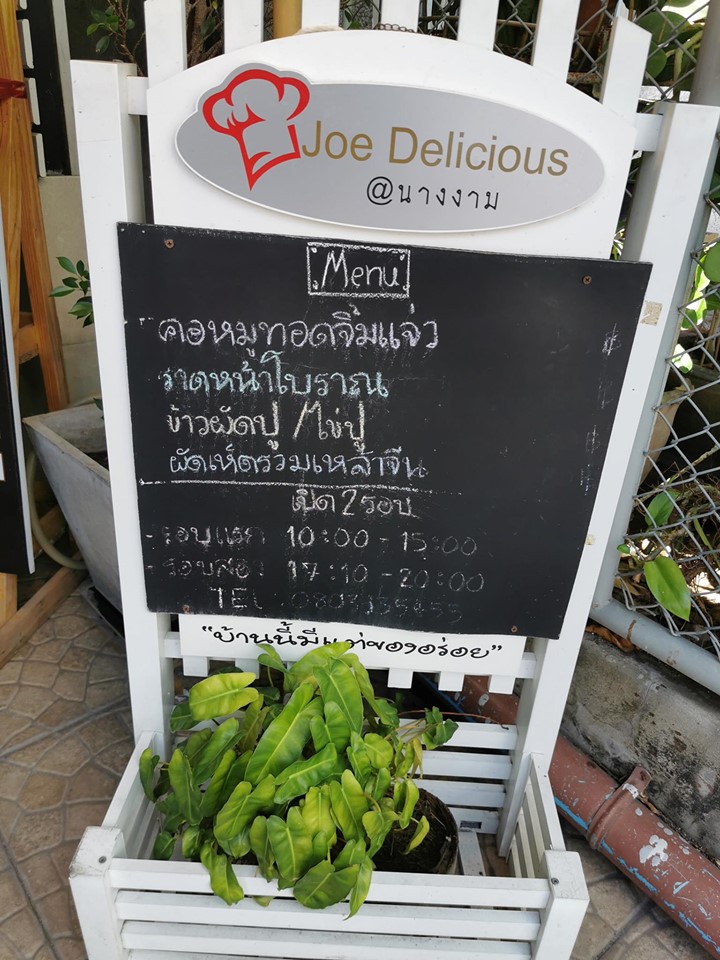 Joe Delicious
@นางงาม
Menu
คอหมูทอดจิ้มแจ่ว
ราดหน้าโบราณ
ข้าวผัดปู / ไข่ปู
ผัดเห็ดรวมเหล้าจีน
เปิด 2 รอบ
- รอบแรก 10:00 - 15:00
- รอบสอง 17:10 - 20:00
TEL
"บ้านนี้มีแต่ของอร่อย"